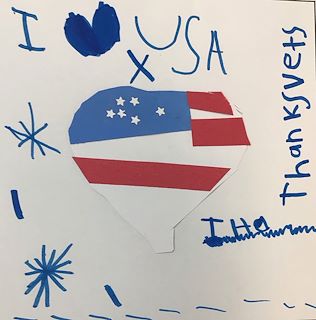 I USA
X
Thanks Vets